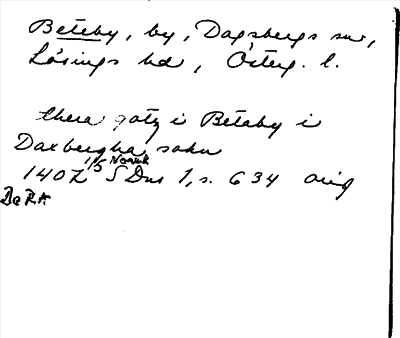 Beteby, by, Dagsbergs sn,
Lösings hd, Österg. l.
thera götz i Beteby i
Daxbergha sokn
1402 1/5 Norrk SDns 1, s. 634 orig
Da RA